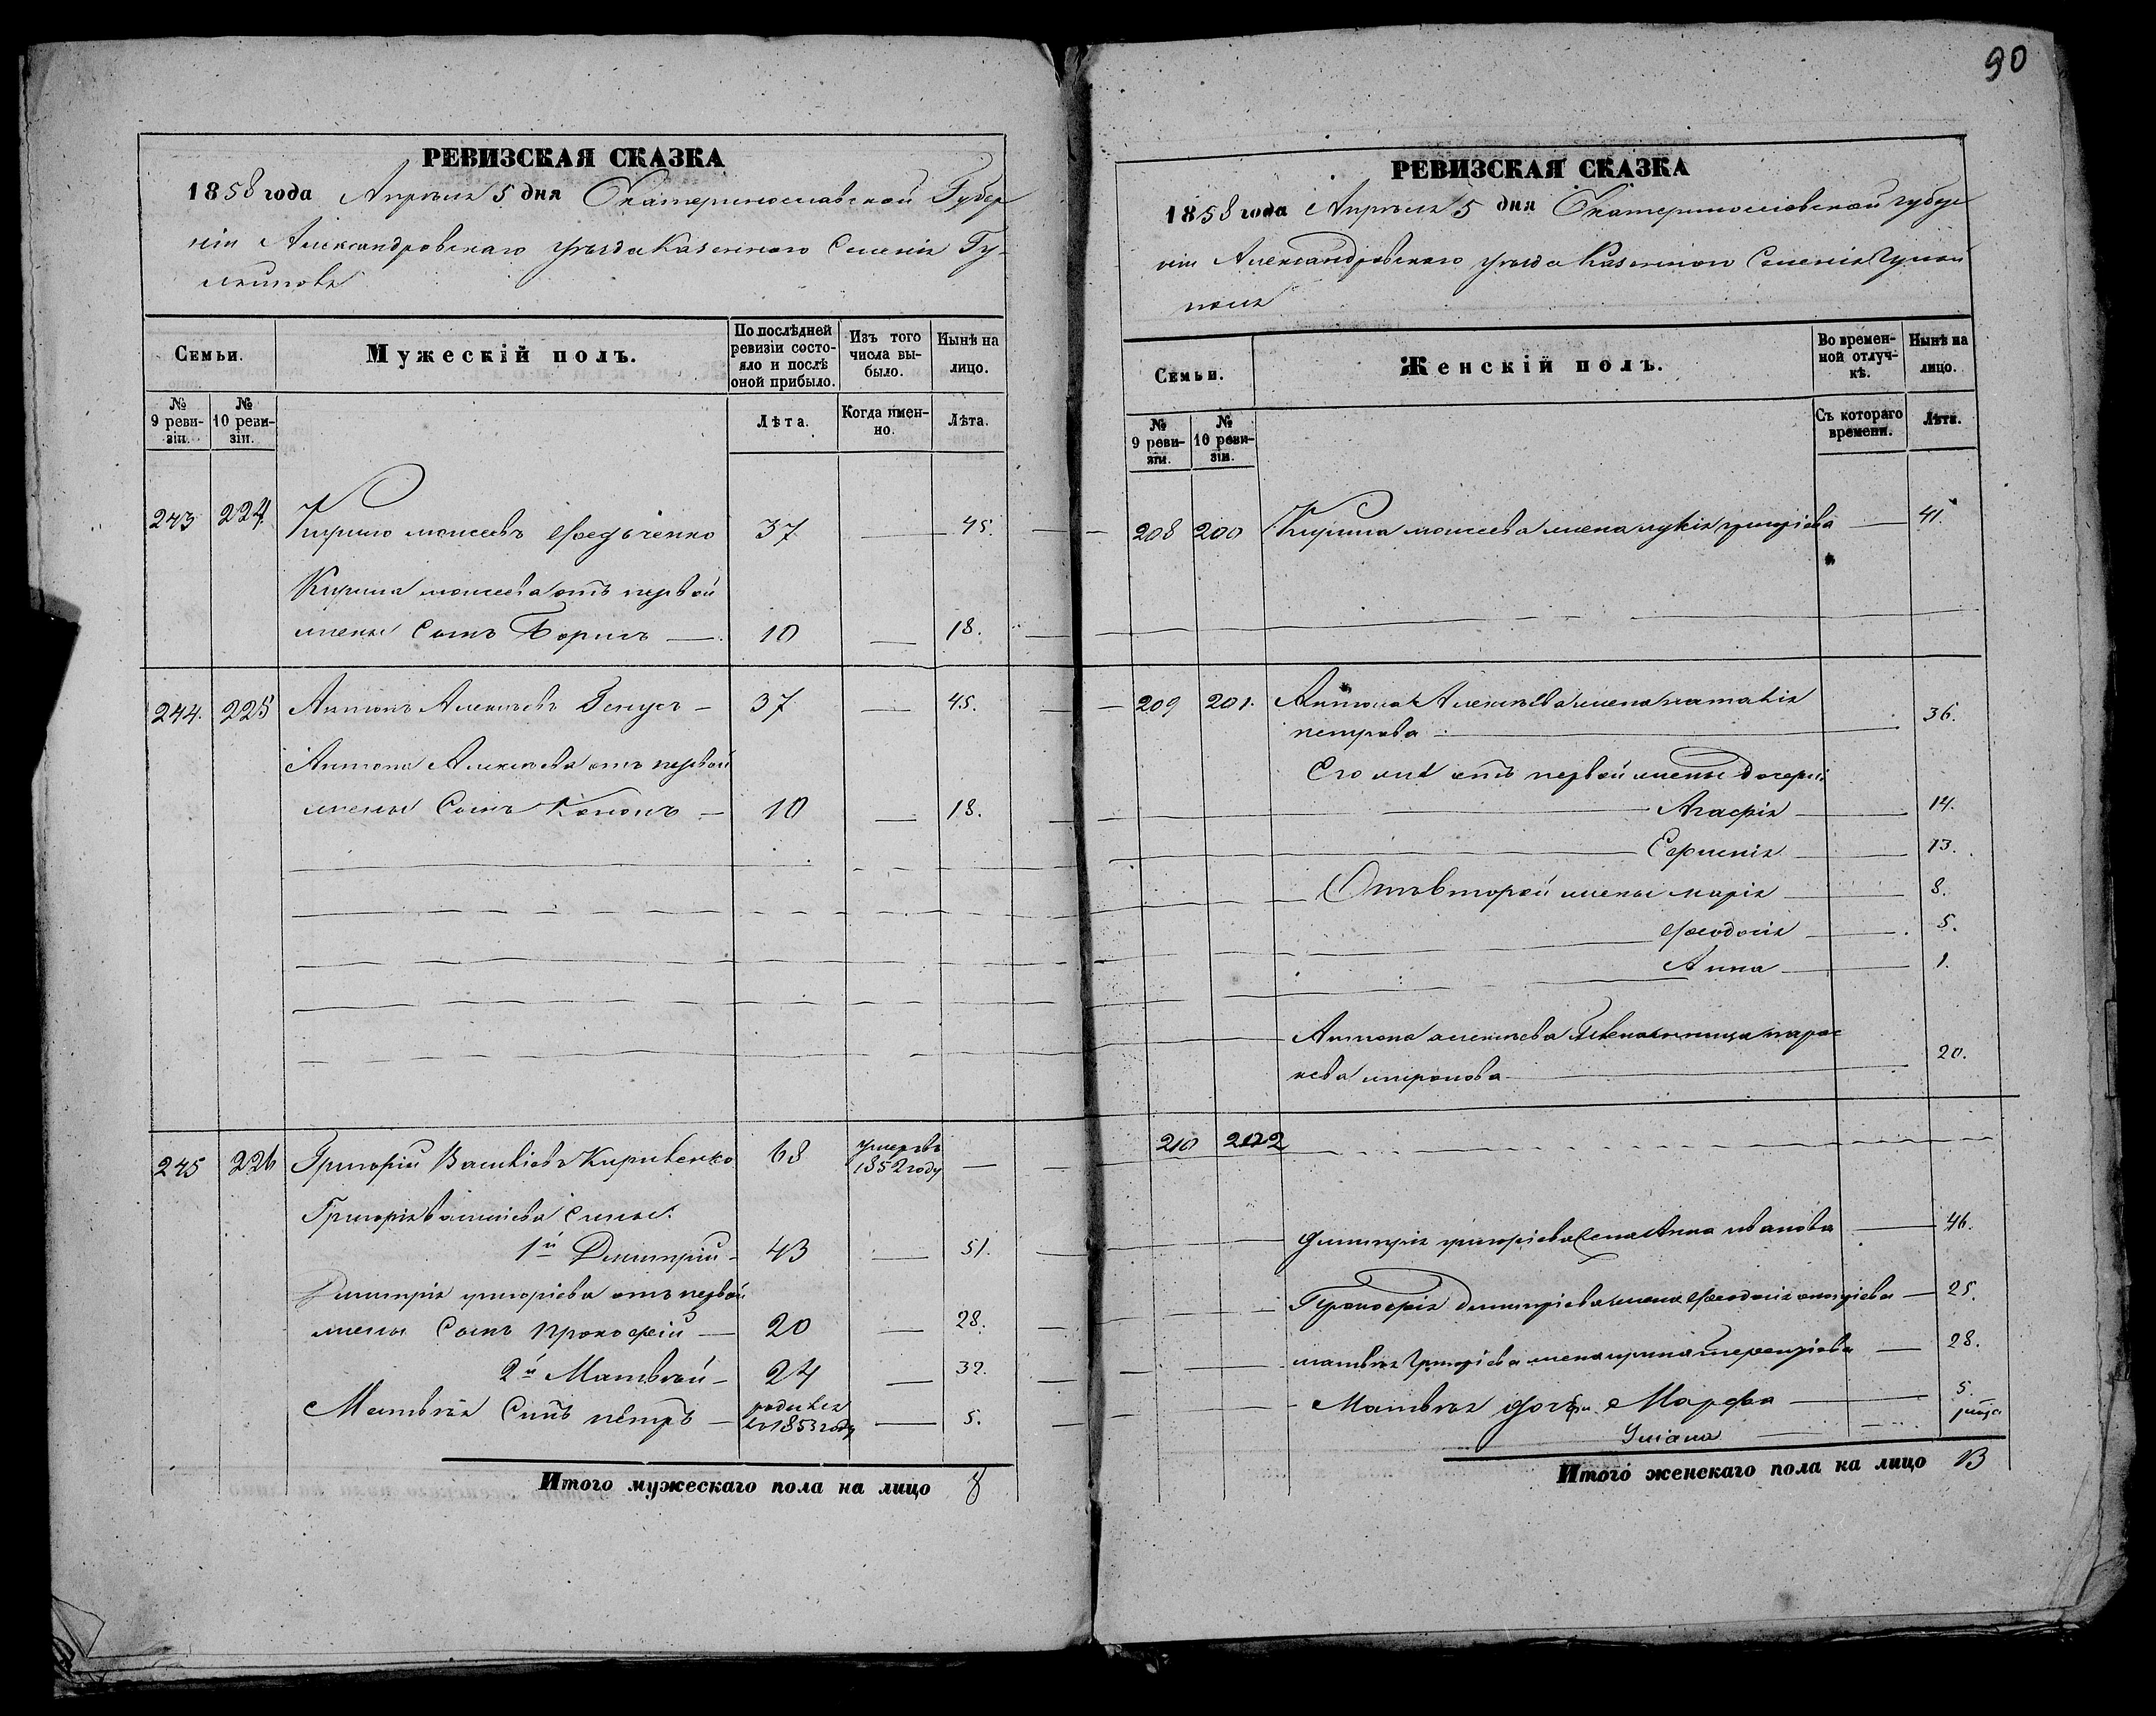 90
РЕВИЗСКАЯ СКАЗКА
1858 года Апрѣля 5 дня Екатеринославской Губер
ніи Александровскаго уѣзда Казеннаго Селенія Гу-
ляйполя
Семьи.
Мужескій полъ.
По послѣдней ревизіи состояло и послѣ оной прибыло.
Изъ того числа выбыло.
Нынѣ на лицо.
№ 9 ревизіи.
№ 10 ревизіи.
Лѣта.
Когда именно.
Лѣта.
243 224 Кирило моисеевъ Федьченко 37 — 45.
Кирила моисеева отъ первой
жены Сынъ Борисъ — 10 — 18.
244. 225 Антонъ Алексѣевъ 37 — 45.
Антона Алексѣева отъ первой
жены Сынъ Кононъ — 10 — 18.
245 226 Григорій Васильевъ Кириченко 68 умеръ въ 1852 году —
Григорія Васильева Сины.
1й Дмитрій — 43 — 51.
Дмитрія григоріева отъ первой
жены Сынъ Прокофій — 20 — 28.
2й Матвѣй — 24 — 32.
Матвѣя Сынъ петръ — родился въ 1853 году — 5.
Итого мужескаго пола на лицо 8
РЕВИЗСКАЯ СКАЗКА
1858 года Апрѣля 5 дня Екатеринославской губер
ніи Александровскаго уѣзда Казеннаго Селенія Гуляй
поля
Семьи.
Женскій полъ.
Во временной отлучкѣ.
Нынѣ на лицо.
№ 9 ревизіи.
№ 10 ревизіи.
Съ котораго времени.
Лѣта.
208 200 Кирила моисеева жена лукія григоріева — 41.
209 201. Антона Алексѣева жена наталія
петрова — 36.
Его же отъ первой жены дочери:
Агафія — 14.
Евфменія — 13.
Отъ второй жены марія — 8.
Феодосія — 5.
Анна — 1.
Антона алексѣева племянница парас
кева миронова — 20.
210 202
Дмитрія григоріева жена Анна иванова — 46.
Прокофія Дмитріева жена Феодосія — 25.
матвѣя Григоріева жена ирина терентіева — 28.
Матвѣя дочери Марфа — 5.
Уліана —
Итого женскаго пола на лицо 13